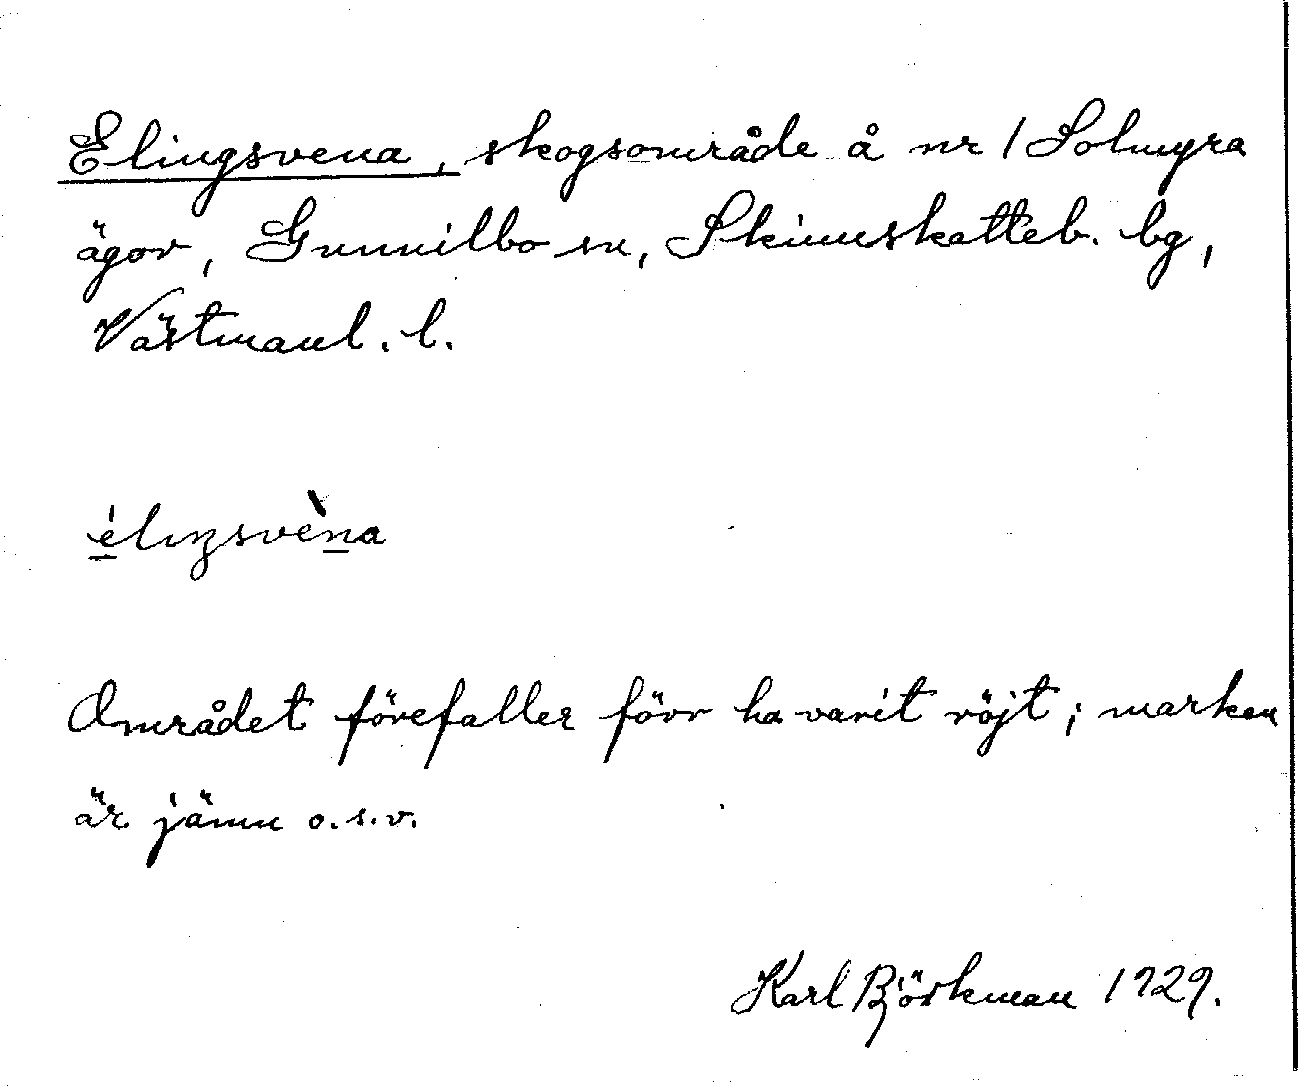 Elingsvena, skogsområde å nr 1 Solmyra
ägor, Gunnilbo sn, Skinnskatteb. bg,
Västmanl. l.
é̲lıŋsvèn̲a
Området förefaller förr ha varit röjt; marken
är jämn o.s.v.
Karl Björkman 1929.